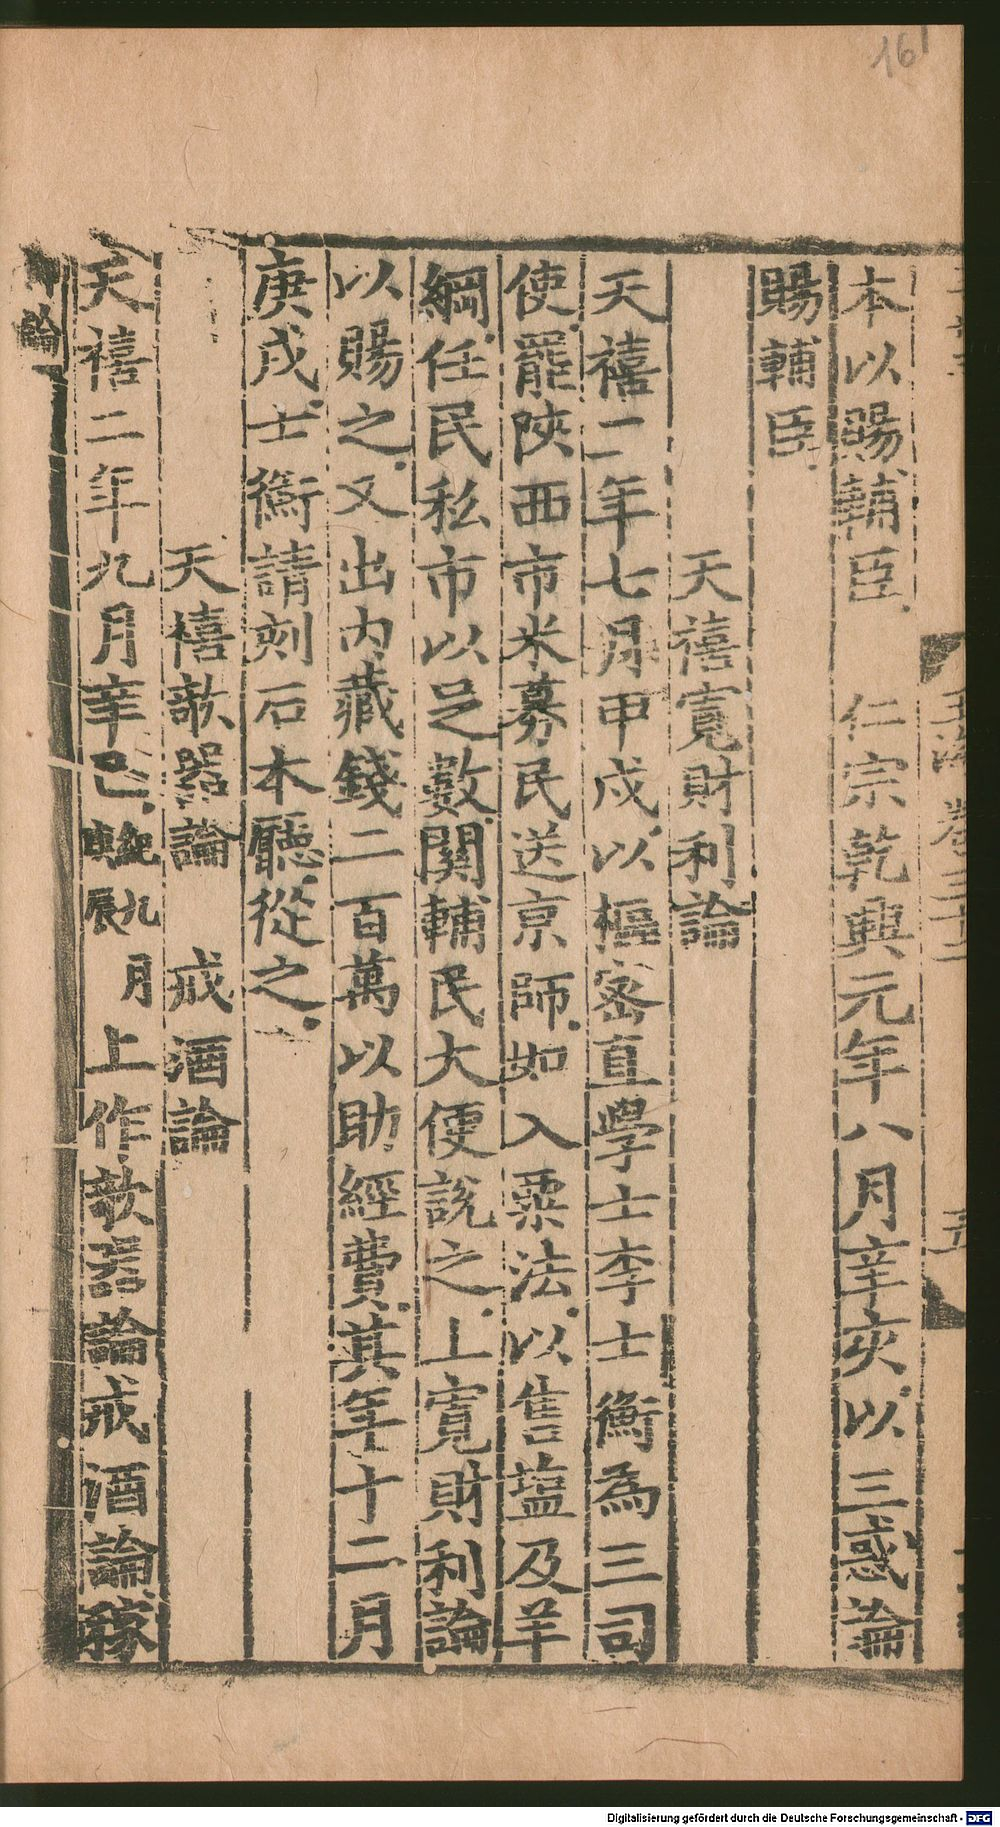 161
本以賜輔臣　仁宗乾興元年八月辛亥以三惑論
賜輔臣
天禧寬財利論
天禧二年七月甲戍以樞密直學士李士衡為三司
使罷陝西市米募民送京師如入粟法以售塩及羊
綱任民私市以足數関輔民大便說之上寬財利論
以賜之又出内藏錢二百萬以助經費其年十二月
庚戌士衡請刻石本廳從之
天禧欹器論　戒酒論
天禧二年九月辛巳紀九月庚辰上作欹器論戒酒論稼
論
Digitalisierung gefördert durch die Deutsche Forschungsgemeinschaft - DFG